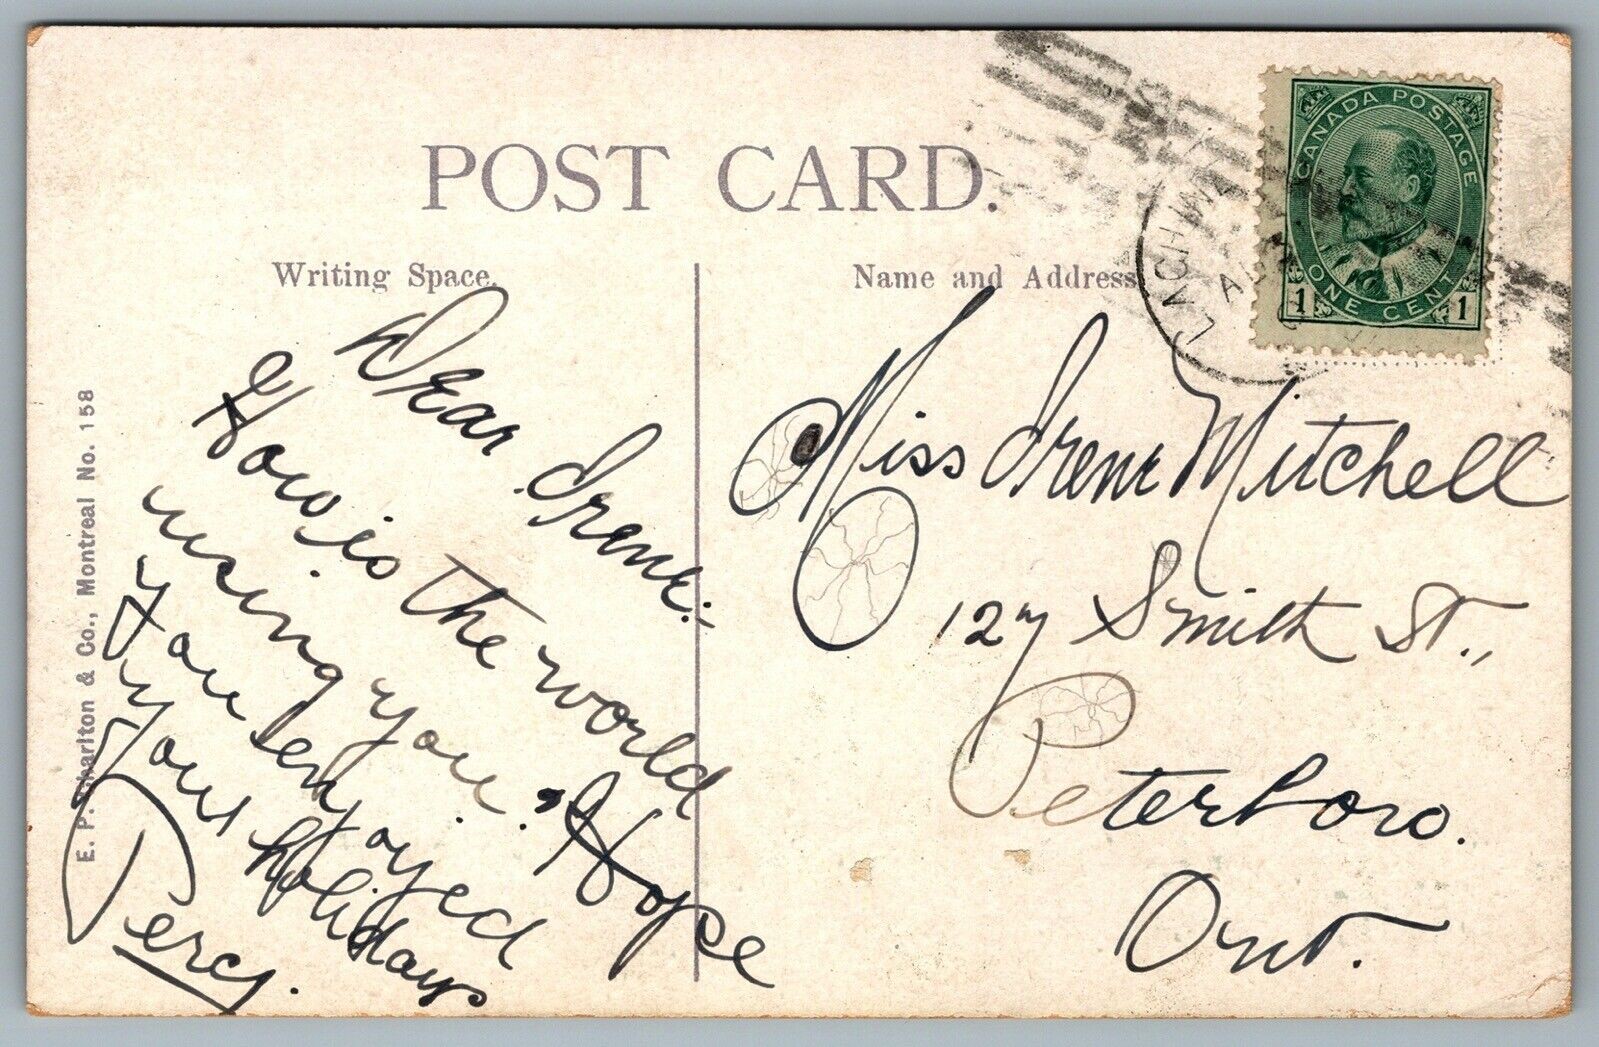 POST CARD.
Writing Space.
Name and Address
CANADA POSTAGE
1 ONE CENT 1
LACHIN
Dear Irene:-
How is the world
using you? Hope
you enjoyed
your holidays
Percy.
Miss Irene Mitchell
127 Smith St.,
Peterboro.
Ont.
E. P. Charlton & Co., Montreal No. 158